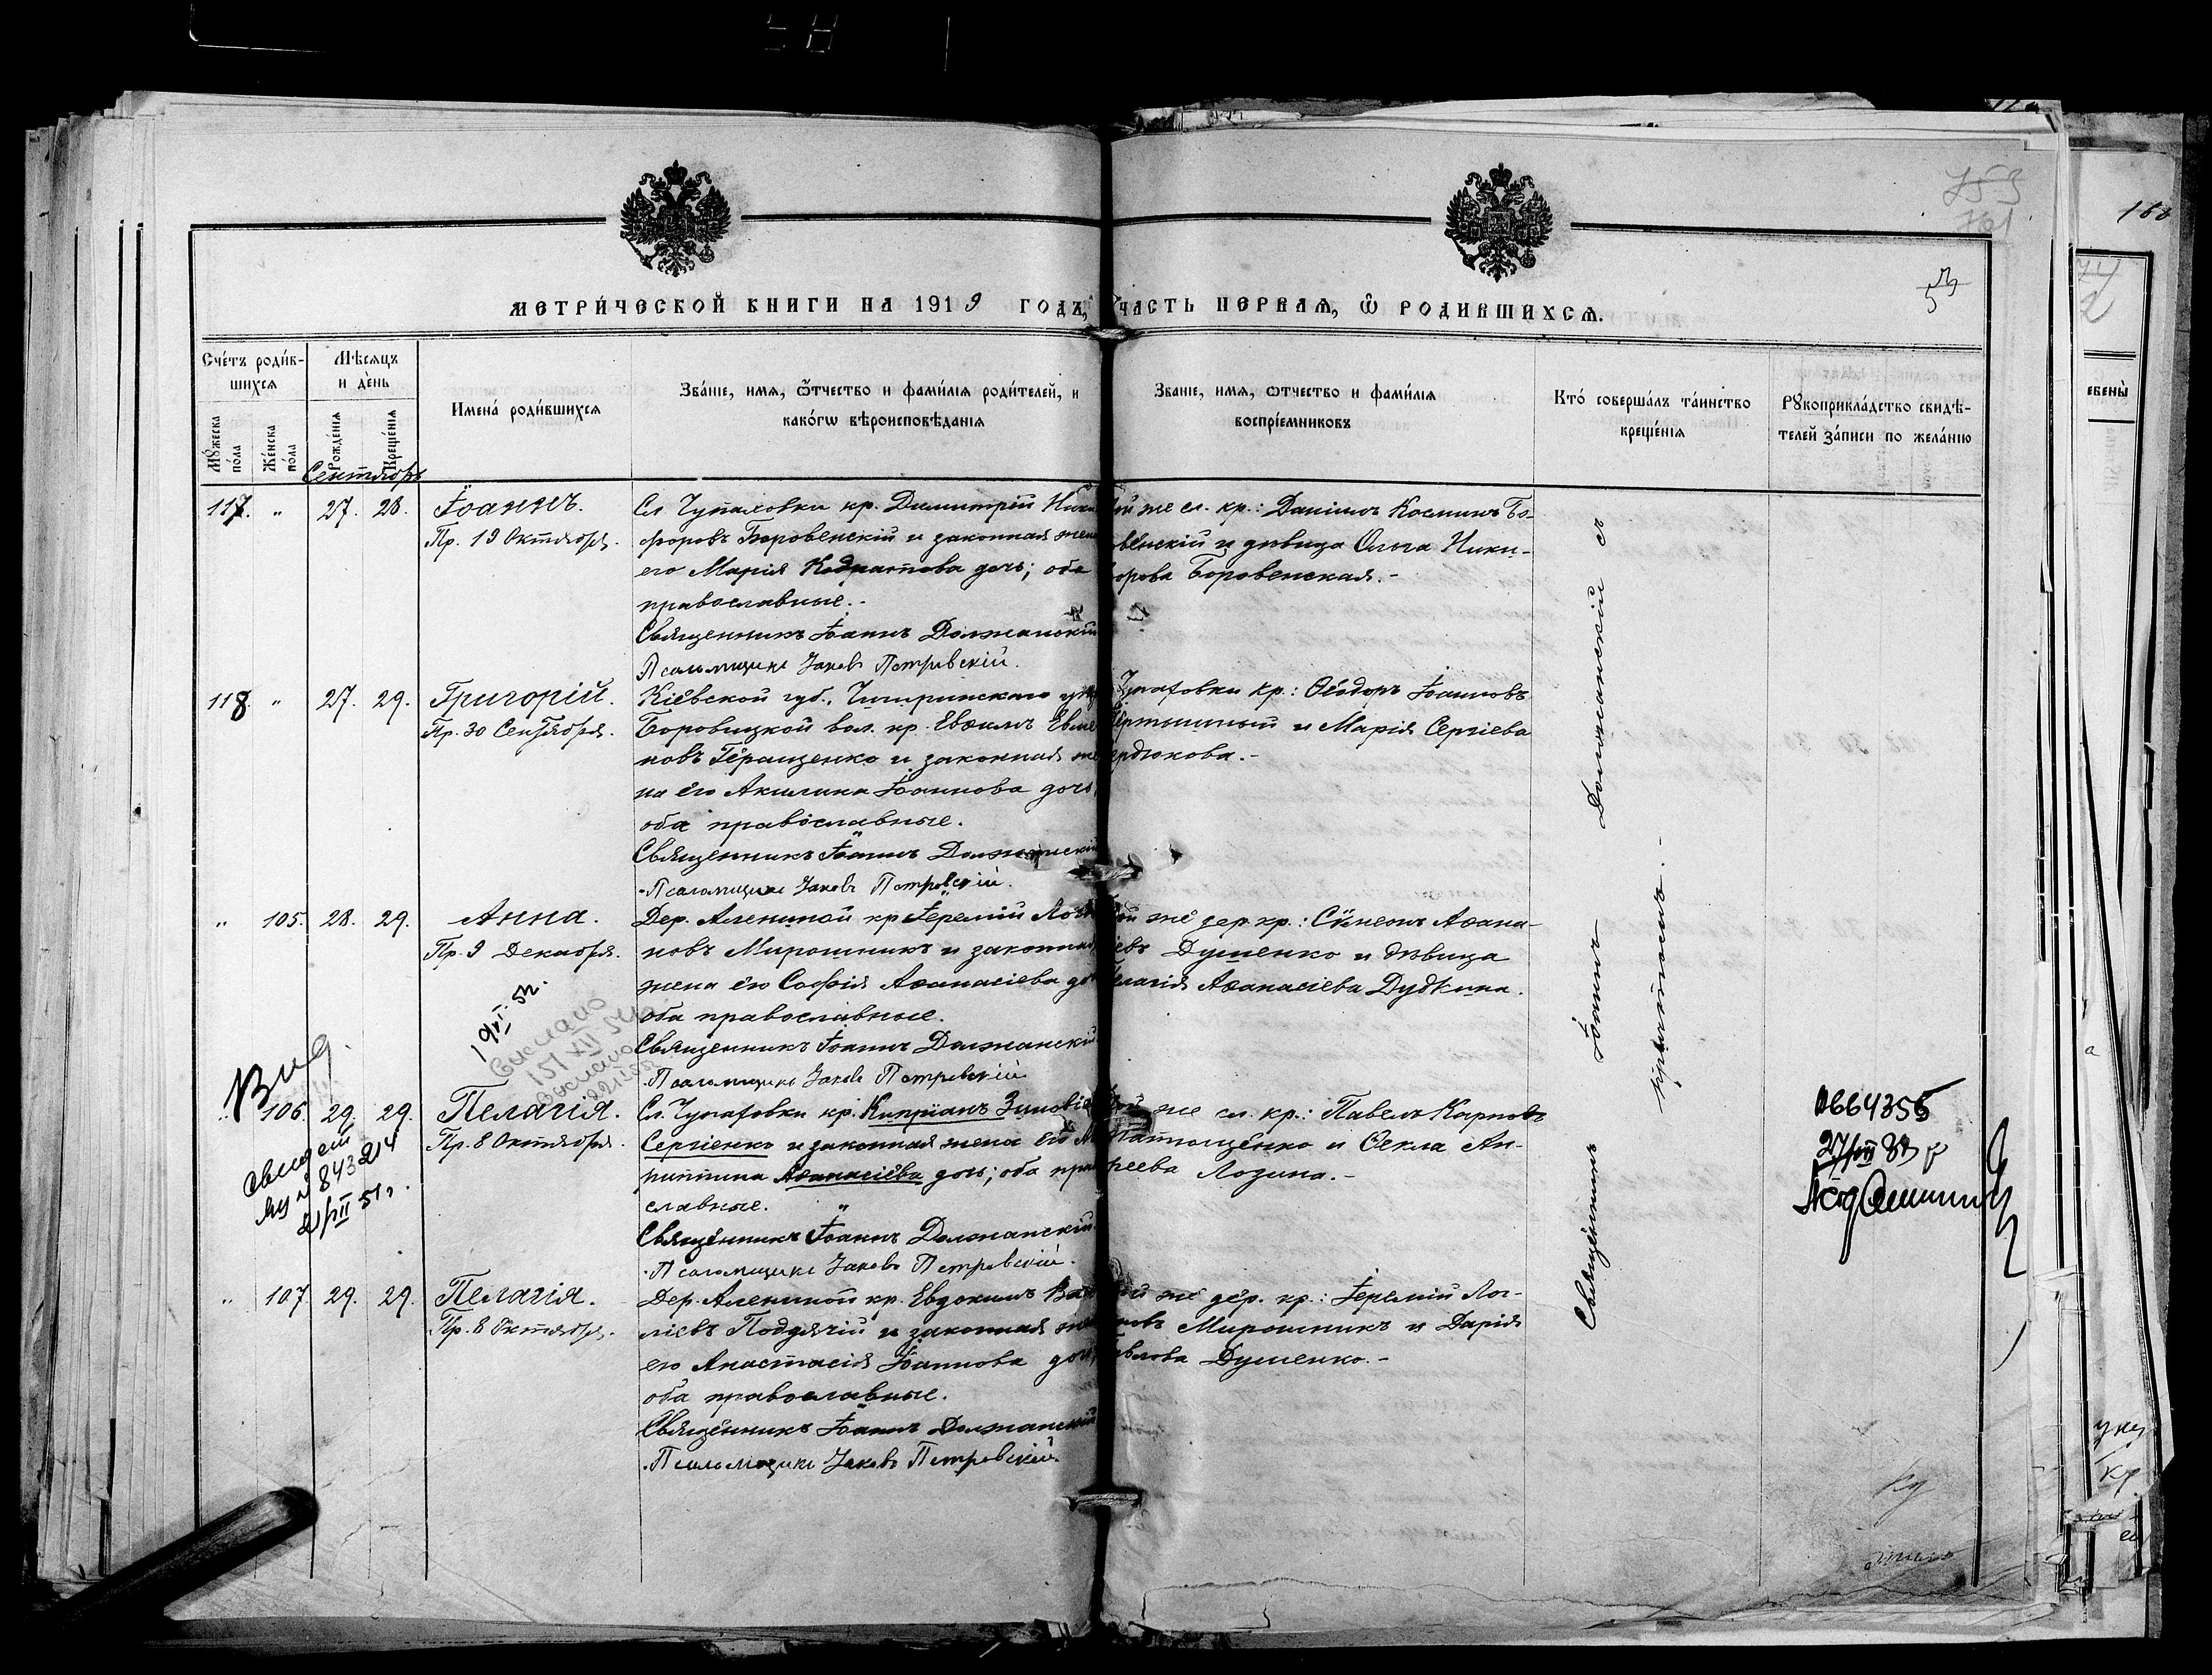 753
761
168
53
МЕТРИ́ЧЕСКОЙ КНИГИ НА 1919 ГОДЪ, ЧАСТЬ ПЕРВАЯ, Ѿ РОДИВШИХСѦ.
Сче́тъ роди́в-
шихсѧ
Мѣ́сѧцъ
и де́нь
Имена́ роди́вшихсѧ
Зва́нїе, имѧ, ѻ́тчество и фами́лїѧ роди́телей, и
како́гѡ вѣроисповѣ́данїѧ
Званїе, имѧ, ѡтчество и фамилїѧ
воспрїе́мниковъ
Кто́ соверша́лъ та́инство
креще́нїѧ
Рꙋкоприкла́дство свидѣ́-
телей за́писи по жела́нїю
Мꙋ́жеска
по́ла
Же́нска
по́ла
Рожде́нїѧ
Креще́нїѧ
Сентябрь
117. " 27. 28. Іоаннъ.
Пр. 19 Октября.
Сл. Чупаховки кр. Димитрій Ники
форовъ Боровенскій и законная жена
его Марія Кодратова дочь; оба
православные.-
Священникъ Іоаннъ Должанскій
Псаломщикъ Іаковъ Петровскій.
той же сл. кр.: Даніилъ Косминъ Бо-
ровенскій и дѣвица Ольга Ники-
форова Боровенская.-
118. " 27. 29. Григорій.
Пр. 30 Сентября.
Кіевской губ., Чигиринскаго уѣз
Боровицкой вол. кр. Евѳимъ Евме
новъ Геращенко и законная же
на его Акилина Іоаннова дочь,
оба православные.
Священникъ Іоаннъ Должанскій
Псаломщикъ Іаковъ Петровскій.
Чупаховки кр.: Ѳеодоръ Іоанновъ
и Марія Сергіева
ердюкова.-
" 105. 28. 29. Анна.
Пр. 9 Декабря.
Дер. Алениной кр. Іеремій Логи
новъ Мирошникъ и законная
жена его Софія Аѳанасіева до
оба православные.
Священникъ Іоаннъ Должанскій
Псаломщикъ Іаковъ Петровскій
той же дер. кр.: Сѵмеонъ Аѳана-
сіевъ Душенко и дѣвица
Пелагія Аѳанасіева Дудкина.
Выслано
" 106. 29. 29. Пелагія.
Пр. 8 Октября.
Сл. Чупаховки кр. Кипріанъ Зиновіе
Сергіенко и законная жена его Аг
риппина Аѳанасіева дочь; оба прав
славные.
Священникъ Іоаннъ Должанскій.
Псаломщикъ Іаковъ Петровскій.
той же сл. кр.: Павелъ Карповъ
и Ѳекла Ан-
реева Лозина.-
0664355
№ 843214
" 107. 29. 29. Пелагія.
Пр. 8 Октября.
Дер. Алениной кр. Евдокимъ Васи
ліевъ Поддячій и законная жена
его Анастасія Іоаннова дочь,
оба православные.
Священникъ Іоаннъ Должанскій
Псаломщикъ Іаковъ Петровскій
той же дер. кр.: Іеремій Лог-
новъ Мирошникъ и Дарія
авлова Душенко.-
Священникъ Іоаннъ Должанскій съ
причтомъ.-